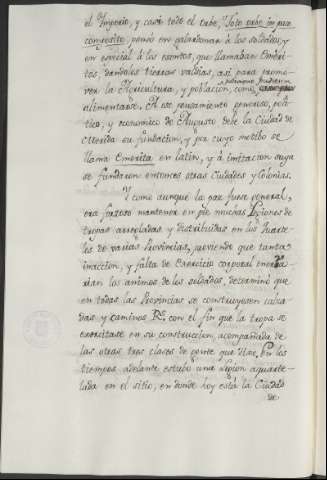 el Ymperio, y casi todo el orbe, Toto orbe in pace
composito, pensó en galardonar á los soldados, y
en especial á los exentos, que llamaban Eméri-
tos, dandoles tierras valdias, asi para promo-
ver la Agricultura, y poblacion, como
alimentarse. A ese pensamiento generoso, poli-
tico, y economico de Augusto debe la Ciudad de
Merida su fundacion, y por cuyo motibo se
llama Emerita en latin, y á imitacion suya
se fundaron entonces otras Ciudades y Colonias.
Y como aunque la paz fuese general,
era forzoso mantener en pie muchas Legiones de
tropas arregladas y distribuidas en los Quarte-
les de varias Provincias, previendo que tanta
inaccion, y falta de Exercicio corporal enerva-
rian los animos de los soldados, determinó que
en todas las Provincias se construyesen calza-
das y caminos Rs. con el fin que la tropa se
exercitase en su construccion, acompañada de
las otras tres clases de gente que dixe, En los
tiempos adelante estubo una Legion aquarte-
lada en el sitio, en donde hoy está la Ciudad
de